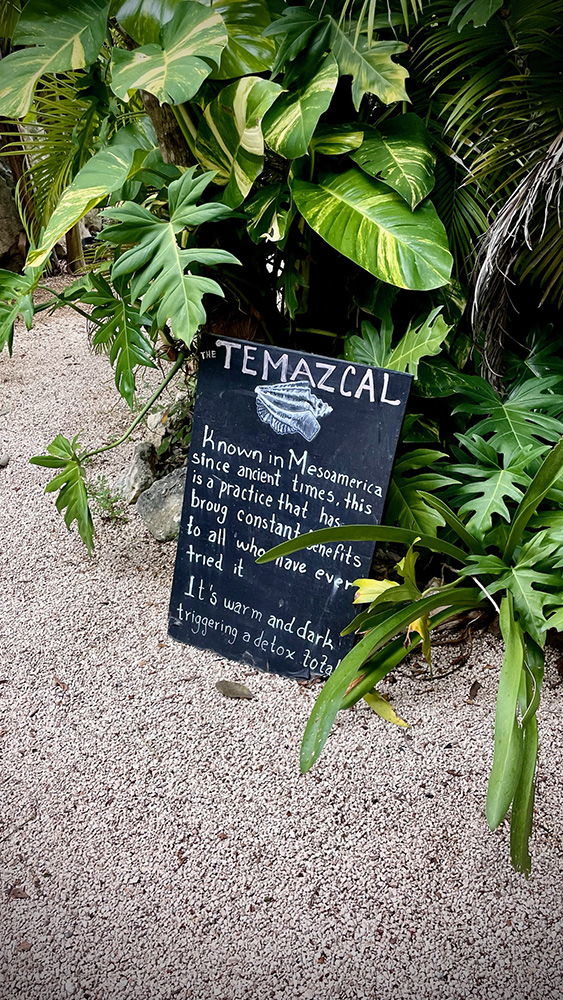 THE TEMAZCAL
Known in Mesoamerica
since ancient times, this
is a practice that has
broug constant benefits
to all who have ever
tried it
It's warm and dark
triggering a detox total